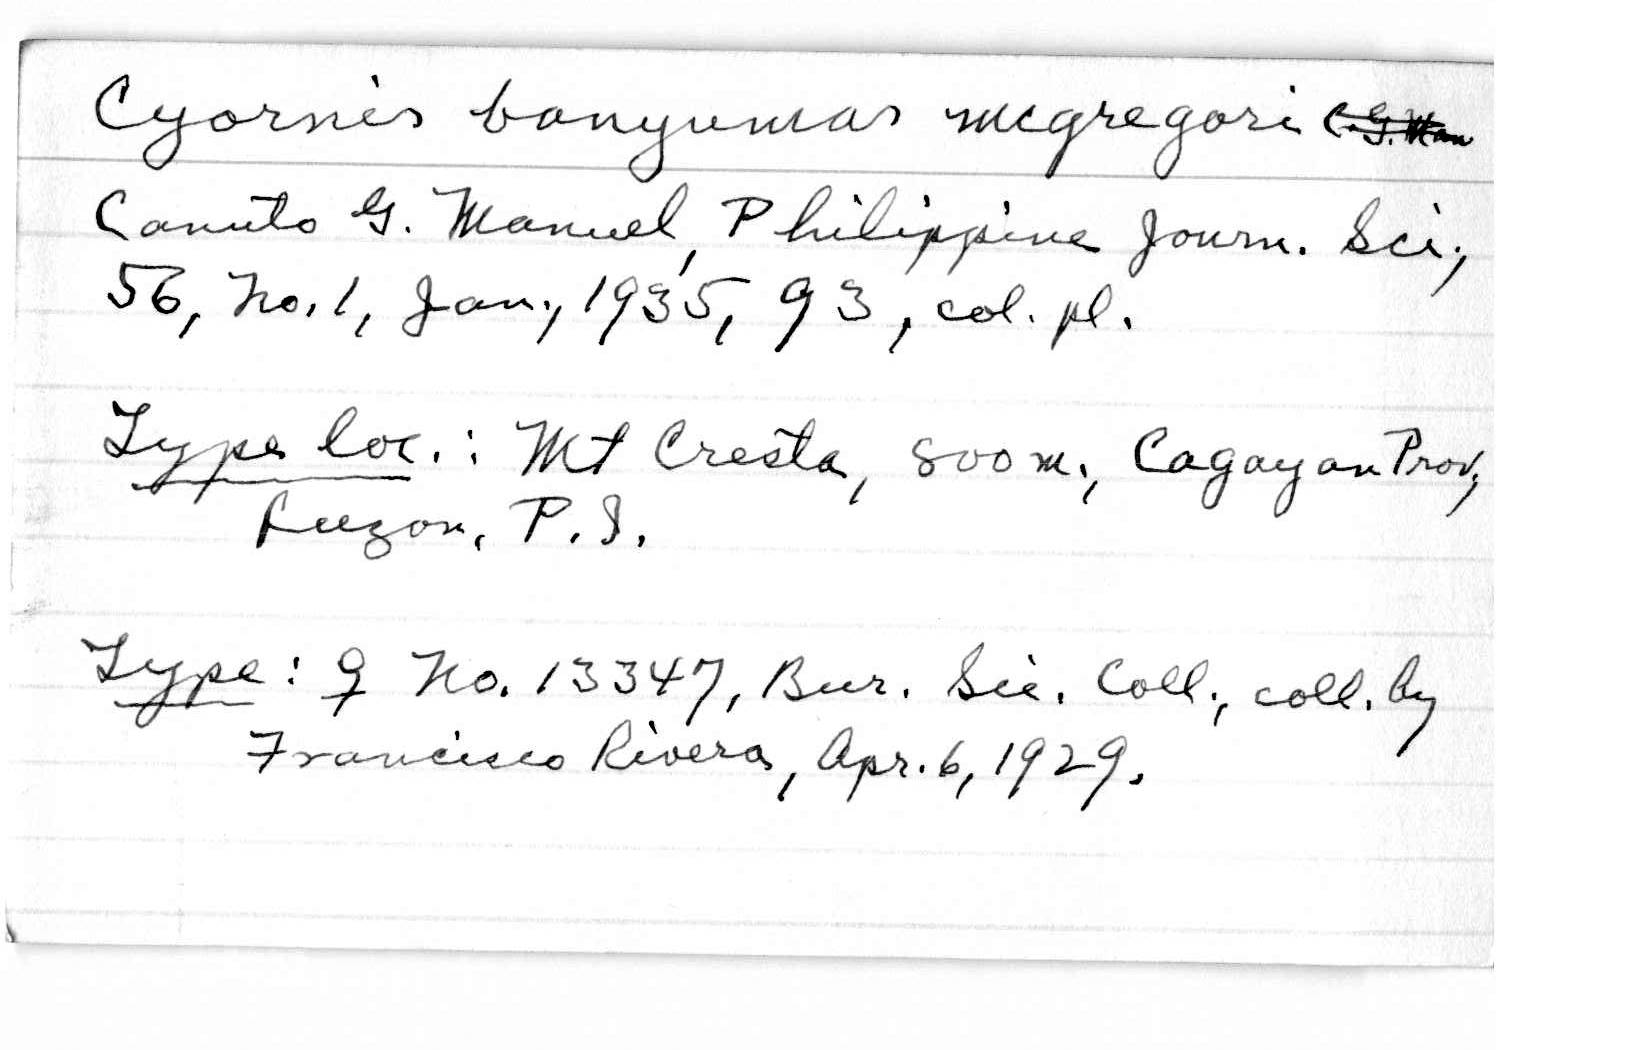 Cyornis banyumas mcgregori C. G. Man
Canuto G. Manuel, Philippine Journ. Sci.,
56, No. 1, Jan., 1935, 93, col. pl.
Type loc.: Mt Cresta, 800 m., Cagayan Prov.,
Luzon, P.I.
Type: ♀ No. 13347, Bur. Sci. Coll., coll. by
Francisco Rivera, Apr. 6, 1929.